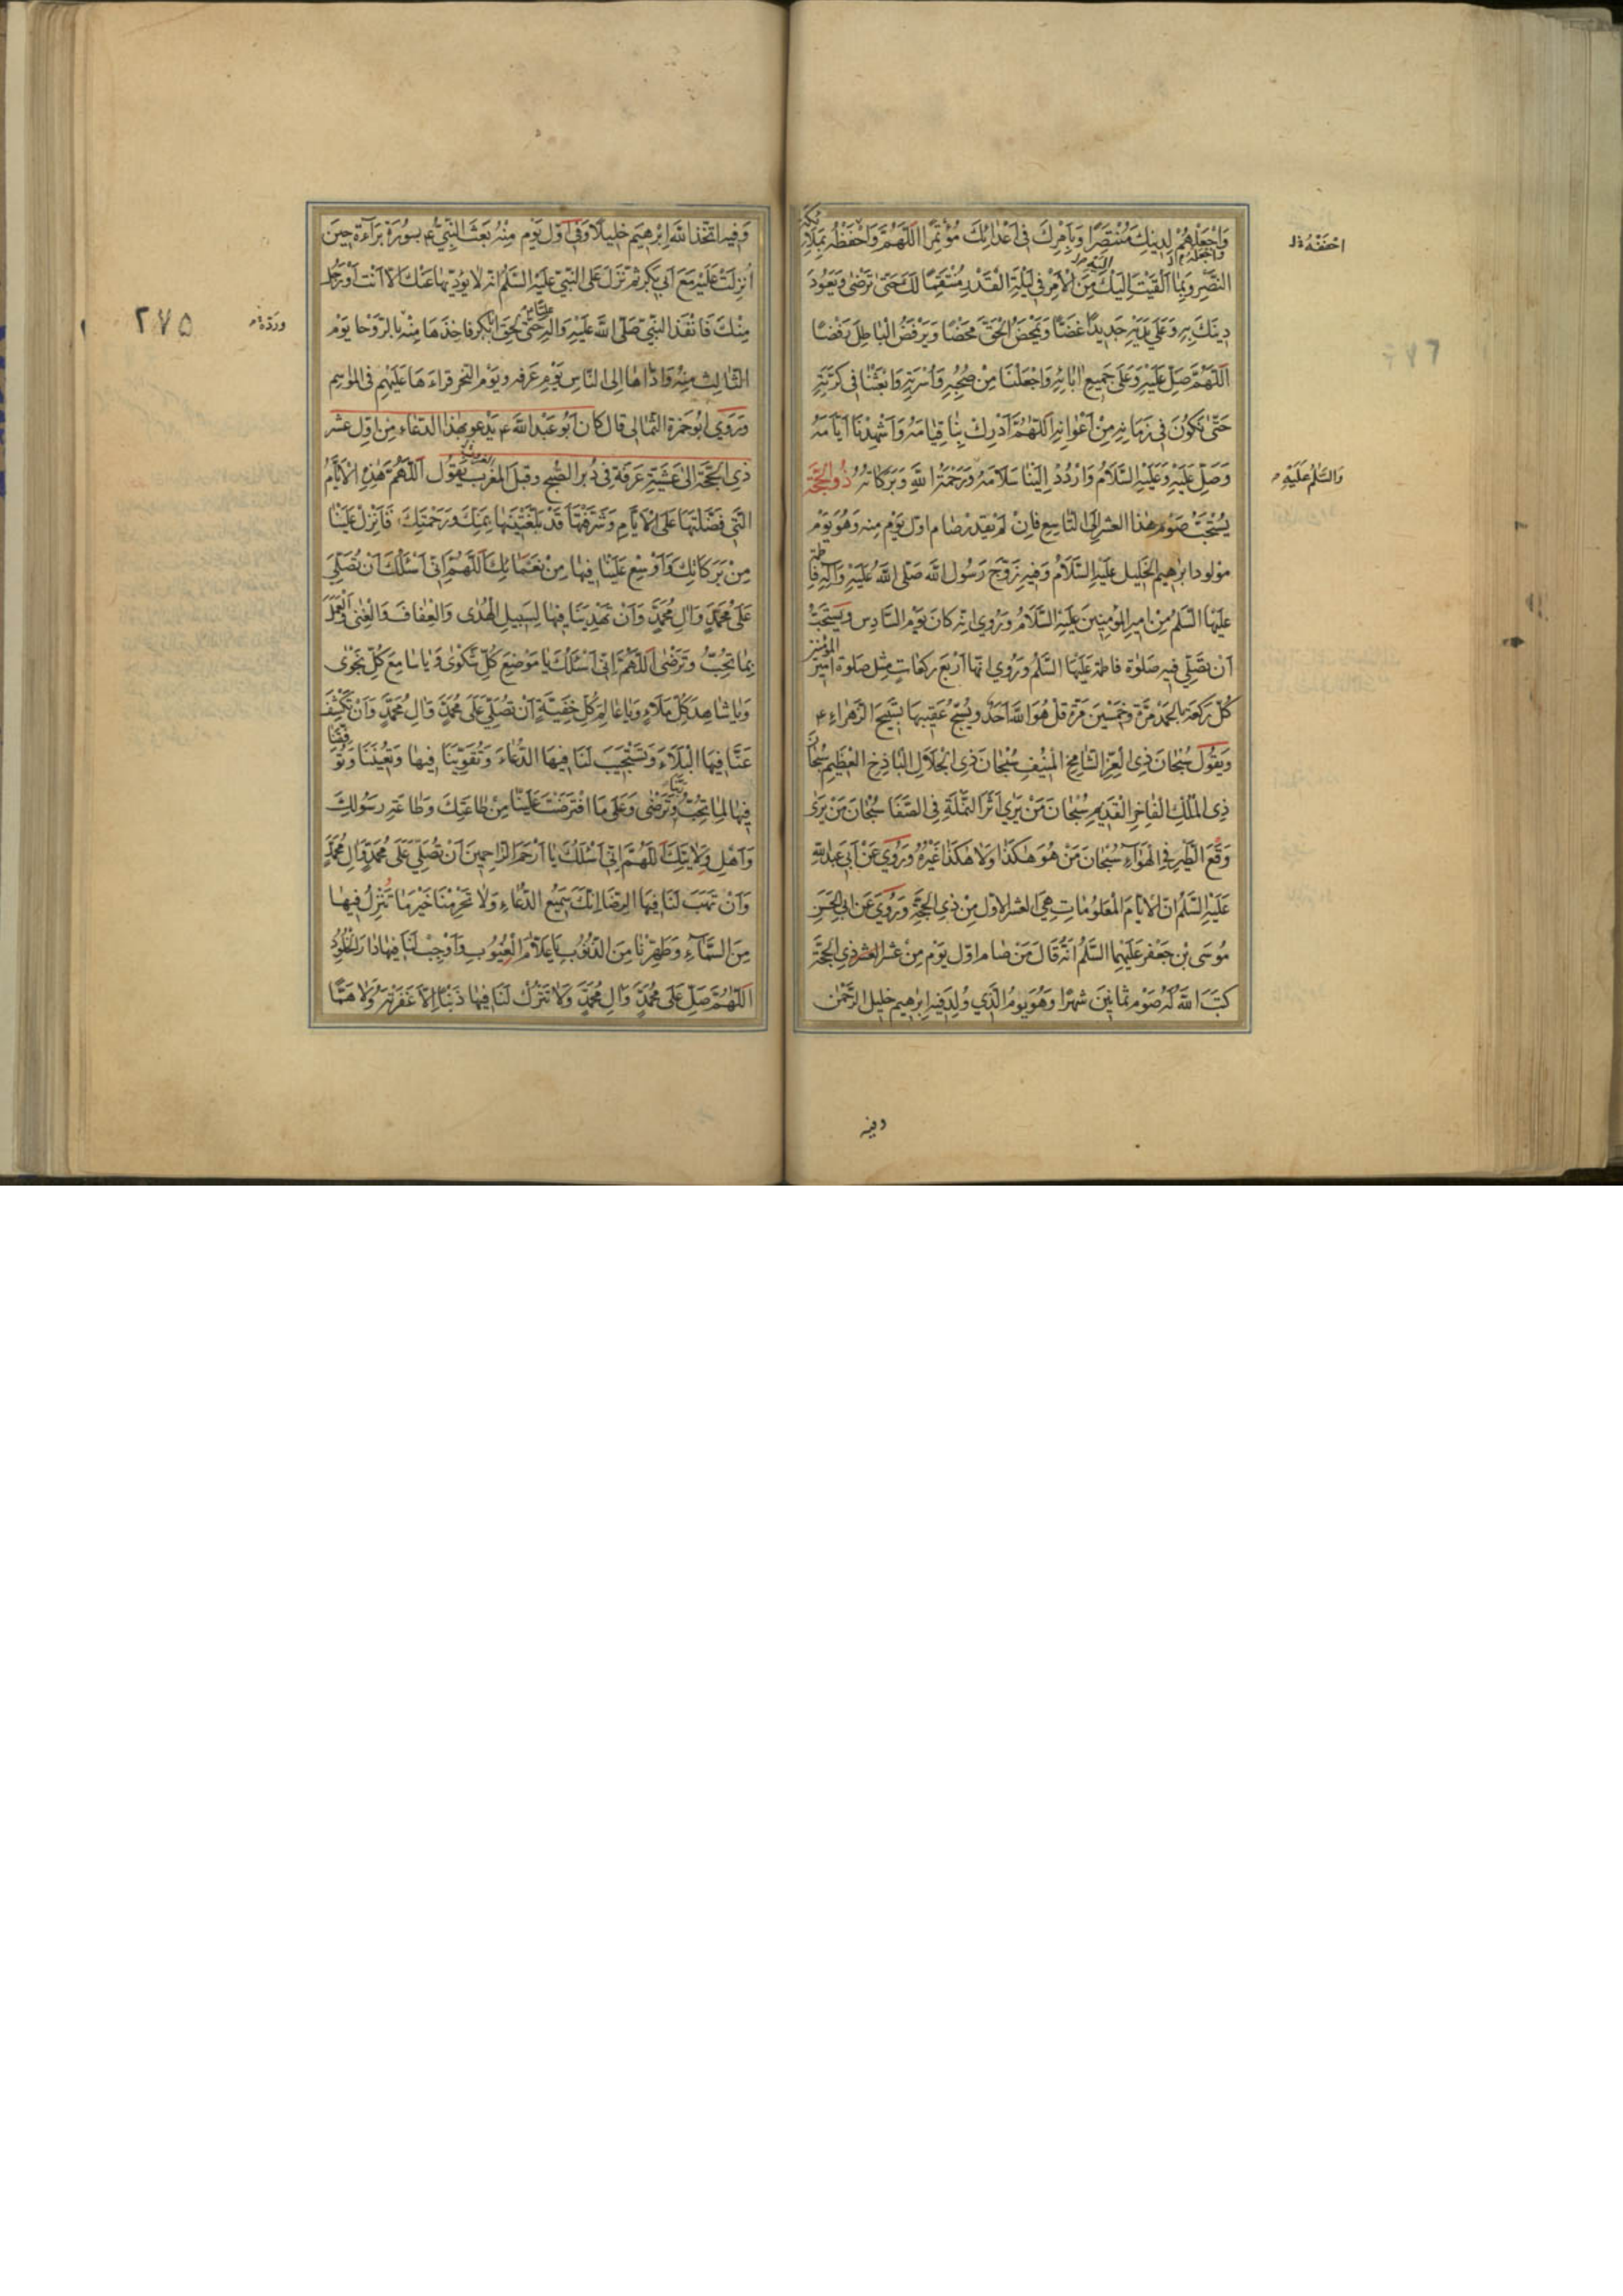 وَاجْعَلْهُمْ لِدِينِكَ مُنْتَصِرًا وَبِأَمْرِكَ فِي أَعْدَائِكَ مُؤْتَمِرًا اَللّٰهُمَّ وَاحْفَظْهُ بِمَلَائِكَةِ
النَّصْرِ وَبِمَا أَلْقَيْتَ إِلَيْكَ مِنَ الْأَمْرِ فِي لَيْلَةِ الْقَدْرِ مُنْتَقِمًا لَكَ حَتّٰى تَرْضٰى وَيَعُودَ
دِينُكَ بِهِ وَعَلٰى يَدَيْهِ جَدِيدًا غَضًّا وَيَمْحَضَ الْحَقَّ مَحْضًا وَيَرْفَضَ الْبَاطِلَ رَفْضًا
اَللّٰهُمَّ صَلِّ عَلَيْهِ وَعَلٰى جَمِيعِ اٰبَائِهِ وَاجْعَلْنَا مِنْ صَحْبِهِ وَأُسْرَتِهِ وَابْعَثْنَا فِي كَرَّتِهِ
حَتّٰى نَكُونَ فِي زَمَانِهِ مِنْ أَعْوَانِهِ اَللّٰهُمَّ أَدْرِكْ بِنَا قِيَامَهُ وَأَشْهِدْنَا أَيَّامَهُ
وَصَلِّ عَلَيْهِ وَعَلَيْهِ السَّلَامُ وَارْدُدْ إِلَيْنَا سَلَامَهُ وَرَحْمَةُ اللّٰهِ وَبَرَكَاتُهُ ذُو الْحِجَّةِ
يُسْتَحَبُّ صَوْمُ هٰذَا العشر إِلَى التَّاسِعِ فَإِنْ لَمْ يقدر صَام اول يَوْمٍ منه وَهُوَ يَوْم
مولود ابرٰهيم الخَلِيلِ عَلَيْهِ السَّلَامُ وَفِيهِ زَوَّجَ رَسُول اللّٰه صَلَّى اللّٰهُ عَلَيْهِ وَاٰلِهِ فاطمة
عليها السَّلم مِنْ امير المُؤمِنِينَ عَلَيْهِ السَّلَامُ وَرُوِيَ انه كَانَ يَوْم السَّادِس وَيُسْتَحَبُّ
اَنْ يصَلِّي فيه صَلٰوة فاطمة عَلَيْهَا السَّلم وَرُوِيَ انها اَرْبَع رَكَعَاتٍ مِثْل صَلٰوة امير المؤمنين
كُلّ رَكعَة بالحمد مَرَّة وَخَمْسِينَ مَرَّة قل هُوَ اللّٰه أَحَدٌ وَيُسَبِّحُ عَقِيبهَا بِتَسْبِيح الزَّهْرَاءِ ع
وَيَقُول سُبْحَانَ ذِي الْعِزِّ الشَّامِخِ الْمُنِيفِ سُبْحَانَ ذِي الْجَلَالِ الْبَاذِخِ الْعَظِيمِ سُبْحَانَ
ذِي الْمُلْكِ الْفَاخِرِ الْقَدِيمِ سُبْحَانَ مَنْ يَرٰى أَثَرَ النَّمْلَةِ فِي الصَّفَا سُبْحَانَ مَنْ يَرٰى
وَقْعَ الطَّيْرِ فِي الْهَوَاءِ سُبْحَانَ مَنْ هُوَ هٰكَذَا وَلَا هٰكَذَا غَيْرُهُ وَرُوِيَ عَنْ أَبِي عَبْدِ اللّٰهِ
عَلَيْهِ السَّلم انّ الْأَيَّامَ الْمَعْلُومَاتِ هِيَ العشر الاول مِنْ ذِي الحِجَّةِ وَرُوِيَ عَنْ ابي الحَسَنِ
مُوسَى بْنِ جَعْفَرٍ عَلَيْهِمَا السَّلم أَنَّهُ قَالَ مَنْ صَام اول يَوْم مِنْ عشر العشر ذِي الحِجَّةِ
كَتَبَ اللّٰه لَهُ صَوْم ثمَانِينَ شهرًا وَهُوَ يوم الَّذِي وُلِدَ فِيهِ اِبْرٰهِيم خَلِيل الرَّحْمٰن
والسَّلم عَلَيْهِ
وفيه
وَفيه اتخذ اللّٰه اِبْرٰهِيم خَلِيلًا وَفِي أَوَّلِ يَوْمٍ مِنْهُ بَعَثَ النَّبِيُّ ع بِسُورَةِ بَرَاءَة حِينَ
أُنْزِلَتْ عَلَيْهِ مَعَ أَبِي بَكْرٍ ثم نَزَلَ عَلَى النَّبِيِّ عَلَيْهِ السَّلم انه لا يُؤَدِّيهَا عَنْكَ اِلَّا اَنْتَ أَوْ رَجُل
مِنْكَ فَأَنْفَذَ النَّبِيُّ صَلَّى اللّٰه عَلَيْهِ وَاٰلِهِ عليًا ع حَتّٰى لَحِقَ ابا بكر فاخذهَا مِنْه بالرَّوْحَا يَوْم
الثالث مِنْهُ وَأَدَّاهَا اِلَى النَّاسِ يَوْمَ عَرَفه وَيَوْم النحر قراءهَا عَلَيْهِمْ فِي المَوَاسِم
وَرَوٰى ابُو حَمْزَة الثُّمَالِي قَالَ كَانَ أَبُو عَبْدِ اللّٰه ع يَدْعُو بِهٰذَا الدعَاء مِنْ اول عشر
ذِي الحِجَّةِ اِلٰى عَشِيَّةِ عَرَفَةَ فِي دُبُرِ الصُّبْحِ وَقَبْلَ المَغْرِب يَقُول اَللّٰهُمَّ هٰذِهِ الْأَيَّامُ
الَّتِي فَضَّلْتَهَا عَلَى الْأَيَّامِ وَشَرَّفْتَهَا قَدْ بَلَّغْتَنِيهَا بِمَنِّكَ وَرَحْمَتِكَ فَأَنْزِلْ عَلَيْنَا
مِنْ بَرَكَاتِكَ وَأَوْسِعْ عَلَيْنَا فِيهَا مِنْ نَعْمَائِكَ اَللّٰهُمَّ اِنِّي أَسْئَلُكَ أَنْ تُصَلِّيَ
عَلٰى مُحَمَّدٍ وَاٰلِ مُحَمَّدٍ وَأَنْ تَهْدِيَنَا فِيهَا لِسَبِيلِ الْهُدٰى وَالْعَفَافَ وَالْغِنٰى وَالْعَمَلَ
بِمَا تُحِبُّ وَتَرْضٰى اَللّٰهُمَّ إِنِّي أَسْئَلُكَ يَا مَوْضِعَ كُلِّ شَكْوٰى وَيَا سَامِعَ كُلِّ نَجْوٰى
وَيَا شَاهِدَ كُلِّ مَلَاءٍ وَيَا عَالِمَ كُلِّ خَفِيَّةٍ أَنْ تُصَلِّيَ عَلٰى مُحَمَّدٍ وَاٰلِ مُحَمَّدٍ وَأَنْ تَكْشِفَ
عَنَّا فِيهَا الْبَلَاءَ وَتَسْتَجِيبَ لَنَا فِيهَا الدُّعَاءَ وَتُقَوِّيَنَا فِيهَا وَتُعِينَنَا وَتُوَفِّقَنَا
فِيهَا لِمَا تُحِبُّ رَبَّنَا وَتَرْضٰى وَعَلٰى مَا افْتَرَضْتَ عَلَيْنَا مِنْ طَاعَتِكَ وَطَاعَةِ رَسُولِكَ
وَأَهْلِ وِلَايَتِكَ اَللّٰهُمَّ إِنِّي أَسْئَلُكَ يَا أَرْحَمَ الرَّاحِمِينَ أَنْ تُصَلِّيَ عَلٰى مُحَمَّدٍ وَاٰلِ مُحَمَّدٍ
وَأَنْ تَهَبَ لَنَا فِيهَا الرِّضَا إِنَّكَ سَمِيعُ الدُّعَاءِ وَلَا تَحْرِمْنَا خَيْرَ مَا تُنْزِلُ فِيهَا
مِنَ السَّمَاءِ وَطَهِّرْنَا مِنَ الذُّنُوبِ يَا عَلَّامَ الْغُيُوبِ وَأَوْجِبْ لَنَا فِيهَا دَارَ الْخُلُودِ
اَللّٰهُمَّ صَلِّ عَلٰى مُحَمَّدٍ وَاٰلِ مُحَمَّدٍ وَلَا تَتْرُكْ لَنَا فِيهَا ذَنْبًا إِلَّا غَفَرْتَهُ وَلَا هَمًّا
٢٧٥